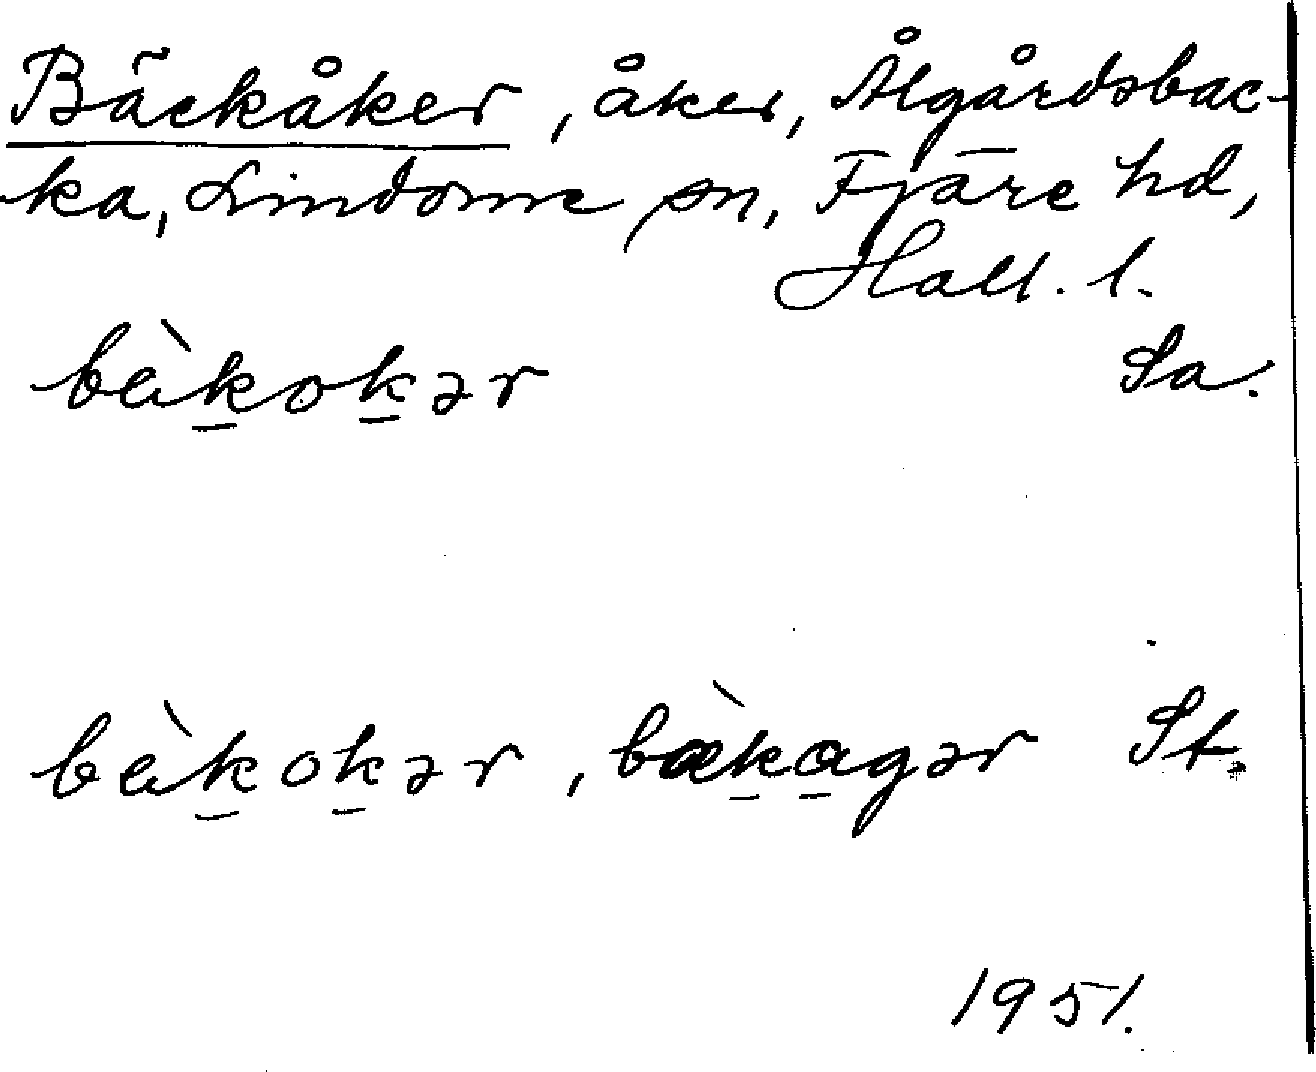 Bäckåker, åker, Ålgårdsbac-
ka, Lindome sn, Fjäre hd,
Hall. l.
bèk̲ok̲ər Sa.
bèk̲ok̲ər, bæ̀k̲a̲gər St.
1951.